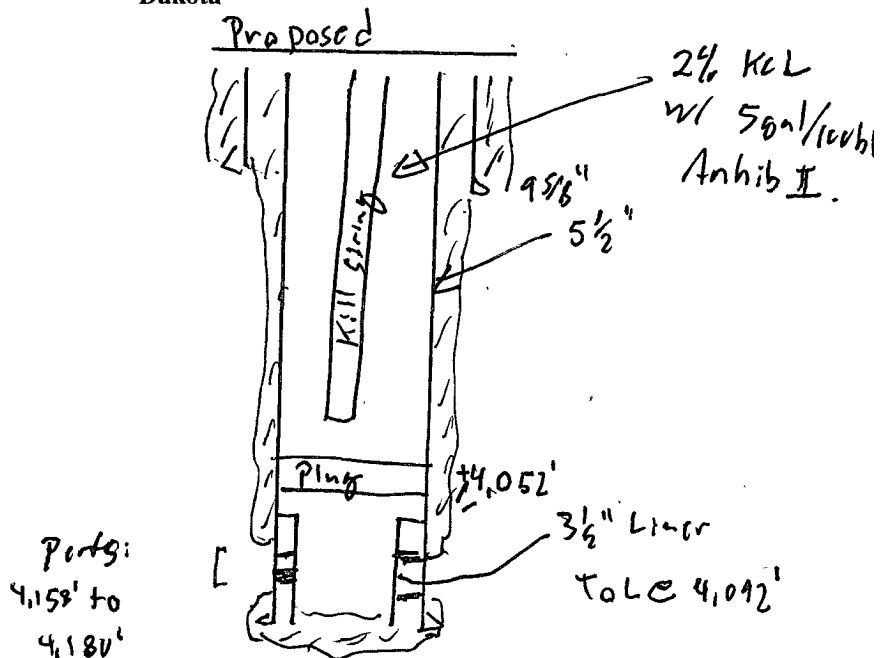 Dakota
Proposed
2% KCL
W/ 5gal/100bbl
Anhib II.
9 5/8"
5 1/2"
Kill String
Plug
±4,052'
3 1/2" Liner
TOL @ 4,092'
Perfs:
4,158' to
4,180'